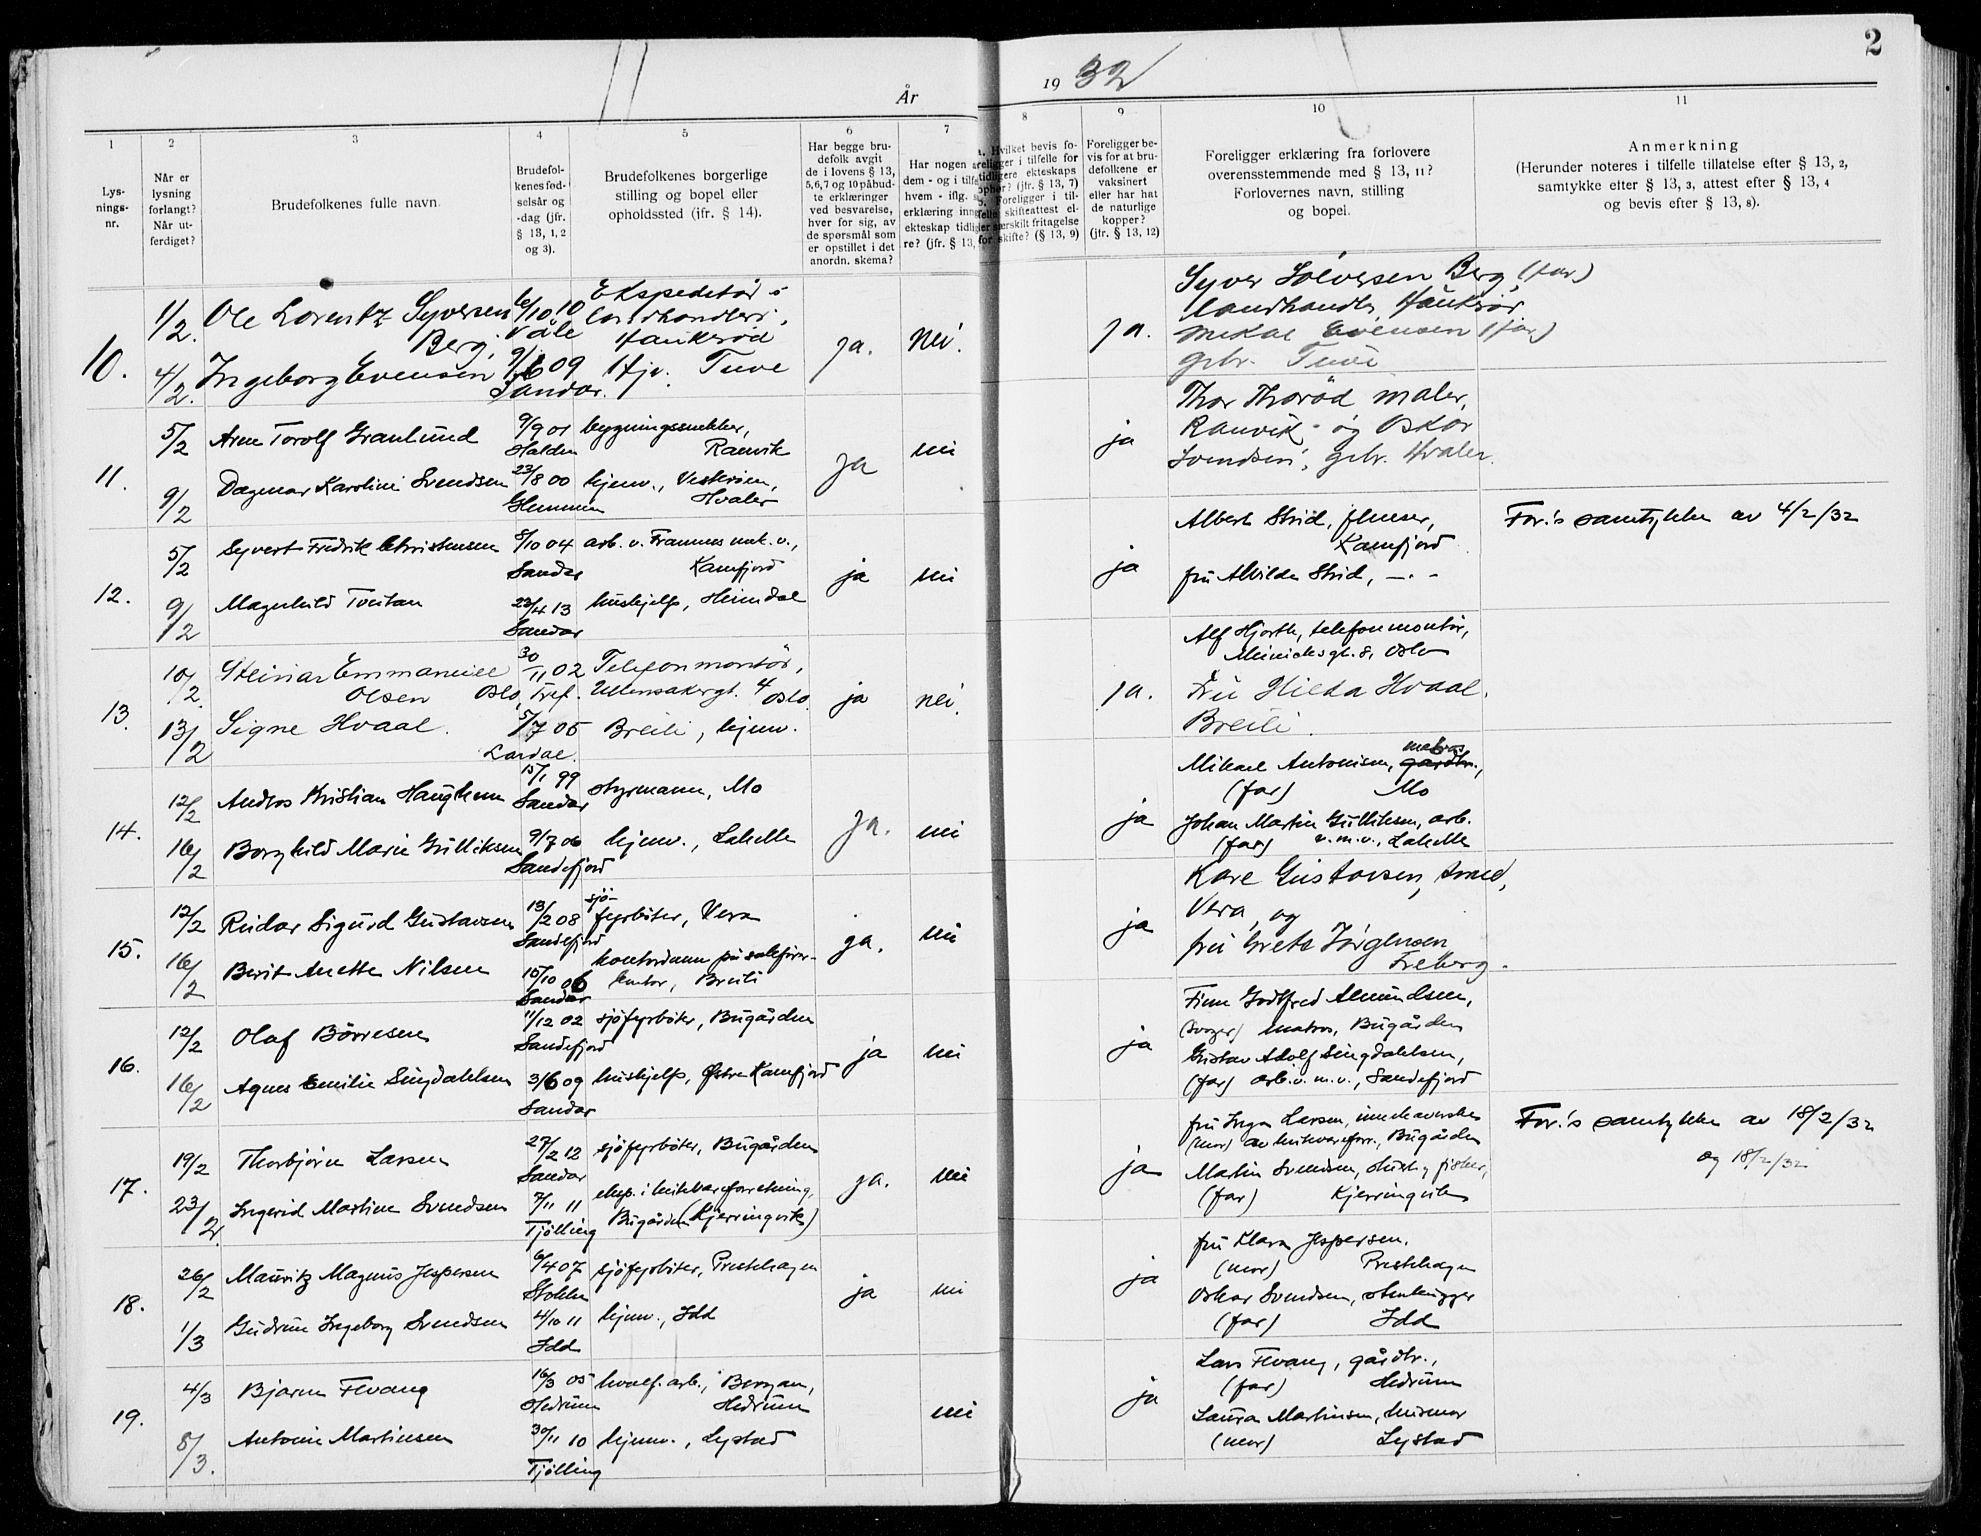 2
År
19 32
1
2
3
4
5
6
7
8
9
10
11
Lys-
nings-
nr.
Når er
lysning
forlangt?
Når ut-
ferdiget?
Brudefolkenes fulle navn.
Brudefol-
kenes fød-
selsår og
-dag (jfr.
§ 13, 1, 2
og 3).
Brudefolkenes borgerlige
stilling og bopel eller
opholdssted (jfr. § 14).
Har begge bru-
defolk avgit
de i lovens § 13,
5, 6, 7 og 10 påbud-
te erklæringer
ved besvarelse,
hver for sig, av
de spørsmål som
er opstillet i det
anordn. skema?
Har nogen a
dem - og i tilfe
hvem - iflg.
erklæring inng
ekteskap tidlig
re? (jfr. § 13,
a. Hvilket bevis fo-
religger i tilfelle for
tidligere ekteskaps
ophør? (jfr. § 13, 7)
b. Foreligger i til-
felle skifteattest el-
ler særskilt fritagelse
for skifte? (§ 13, 9)
Foreligger be-
vis for at bru-
defolkene er
vaksinert
eller har hat
de naturlige
kopper?
(jfr. § 13, 12)
Foreligger erklæring fra forlovere
overensstemmende med § 13, 11?
Forlovernes navn, stilling
og bopel.
Anmerkning
(Herunder noteres i tilfelle tillatelse efter § 13, 2,
samtykke efter § 13, 3, attest efter § 13, 4
og bevis efter § 13, 8).
10.
1/2. Ole Lorentz Syversen 6/10 10 Ekspeditør i
Berg. Våle landhandleri, Haukerød
4/2. Ingeborg Evensen 09 Hjv. Tuve
Sandar.
ja. nei. ja.
Syver Solvesen Berg, (far)
landhandler, Haukerød
Mikal Evensen (far)
gbr. Tuve
11.
5/2 Arne Torolf Granlund 9/9 01 bygningssnekker,
Halden Ranvik
9/2 Dagmar Karoline Svendsen 23/8 00 hjemv., Vesterøen,
Glemmen Hvaler
ja nei ja
Thor Thorød maler,
Ranvik og Oskar
Svendsen, gbr. Hvaler.
12.
5/2 Syvert Fredrik Christensen 8/10 04 arb. v. Framnes mek. v.,
Sandar Kamfjord
9/2 Magnhild Tveitan 23/4 13 hushjelp, Heimdal
Sandar
ja nei ja
Albert Strid,
Kamfjord
fru Alvilde Strid, — . -
For.'s samtykke av 4/2/32
13.
10/2. Steinar Emmanuel 30/11 02 Telefonmontør,
Olsen Oslo, Tref. Ullensakergt. 4 Oslo.
13/2 Signe Hvaal. 5/7 05 Breili, hjemv.
Lardal.
ja nei. ja.
Alf Hjorth, telefonmontør,
8, Oslo
Fru Hilda Hvaal.
Breili.
14.
12/2 Andros Kristian Haugheim 15/1 99 styrmann, Mo
Sandar
16/2 Borghild Marie Gulliksen 9/7 06 hjemv., Lahelle
Sandefjord
ja. nei ja
Mikael Antonisen, matros gårdbr.,
(far) Mo
Johan Martin Gulliksen, arb.
(far) v. m. v., Lahelle
15.
12/2 Reidar Sigurd Gustavsen 13/2 08 sjö-fyrböter, Vera
Sandefjord
16/2 Berit Anette Nilsen 15/10 06 kontordame på
kontor, Breili
Sandar
ja. nei ja
Kåre Gustavsen,
Vera, og
fru Grete Jørgensen
Freberg.
16.
12/2 Olaf Börresen 11/12 02 sjöfyrböter, Bugården
Sandefjord
16/2 Agnes Emilie Lingdahlsen 3/6 09 hushjelp, Østre Kamfjord
Sandar
ja nei ja
Finn Godtfred Amundsen,
(svoger) matros, Bugården
Gustav Adolf Lingdahlsen,
(far) arb. v. m. v., Sandefjord
17.
19/2 Thorbjörn Larsen 27/2 12 sjöfyrböter, Bugården
Sandar
23/2. Ingerid Martine Svendsen 7/11 11 eksp. i hvitevareforretning,
Tjølling Bugården (Kjerringvik)
ja. nei ja
fru Inga Larsen, innehaverske
(mor) av hvitevareforr., Bugården
Martin Svendsen, fisker,
(far) Kjerringvik
For.'s samtykke av 18/2/32
og 18/2/32
18.
26/2 Mauritz Magnus Jespersen 6/4 07 sjöfyrböter, Prestehagen
Stokke
1/3 Gudrun Ingeborg Svendsen 4/10 11 hjemv., Idd
Idd
ja nei ja
fru Klara Jespersen,
(mor) Prestehagen
Oskar Svendsen, stenhugger
(far) Idd
19.
4/3 Bjarne Hvang 16/3 05 hvalf. arb., Bergan,
Hedrum Hedrum
8/3. Antonie Martinsen 30/11 10 hjemv., Lystad
Tjölling
nei ja
Lars Hvang, gårdbr.,
(far) Hedrum
Laura Martinsen, husmor
(mor) Lystad